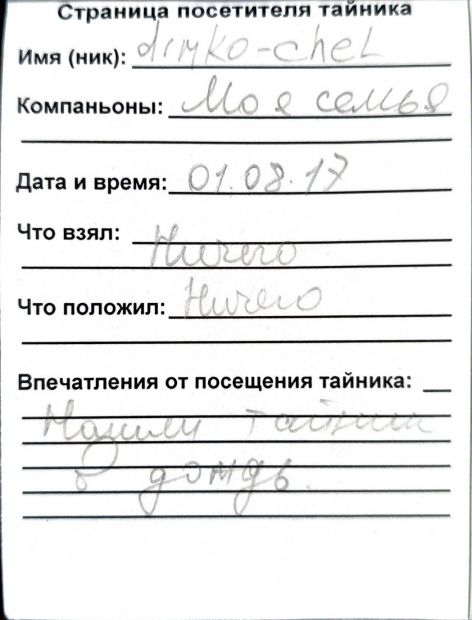 Страница посетителя тайника
Имя (ник): dimko-chel
Компаньоны: Моя семья
Дата и время: 01.08.17
Что взял:
Ничего
Что положил: Ничего
Впечатления от посещения тайника:
Нашли тайник
в дождь.